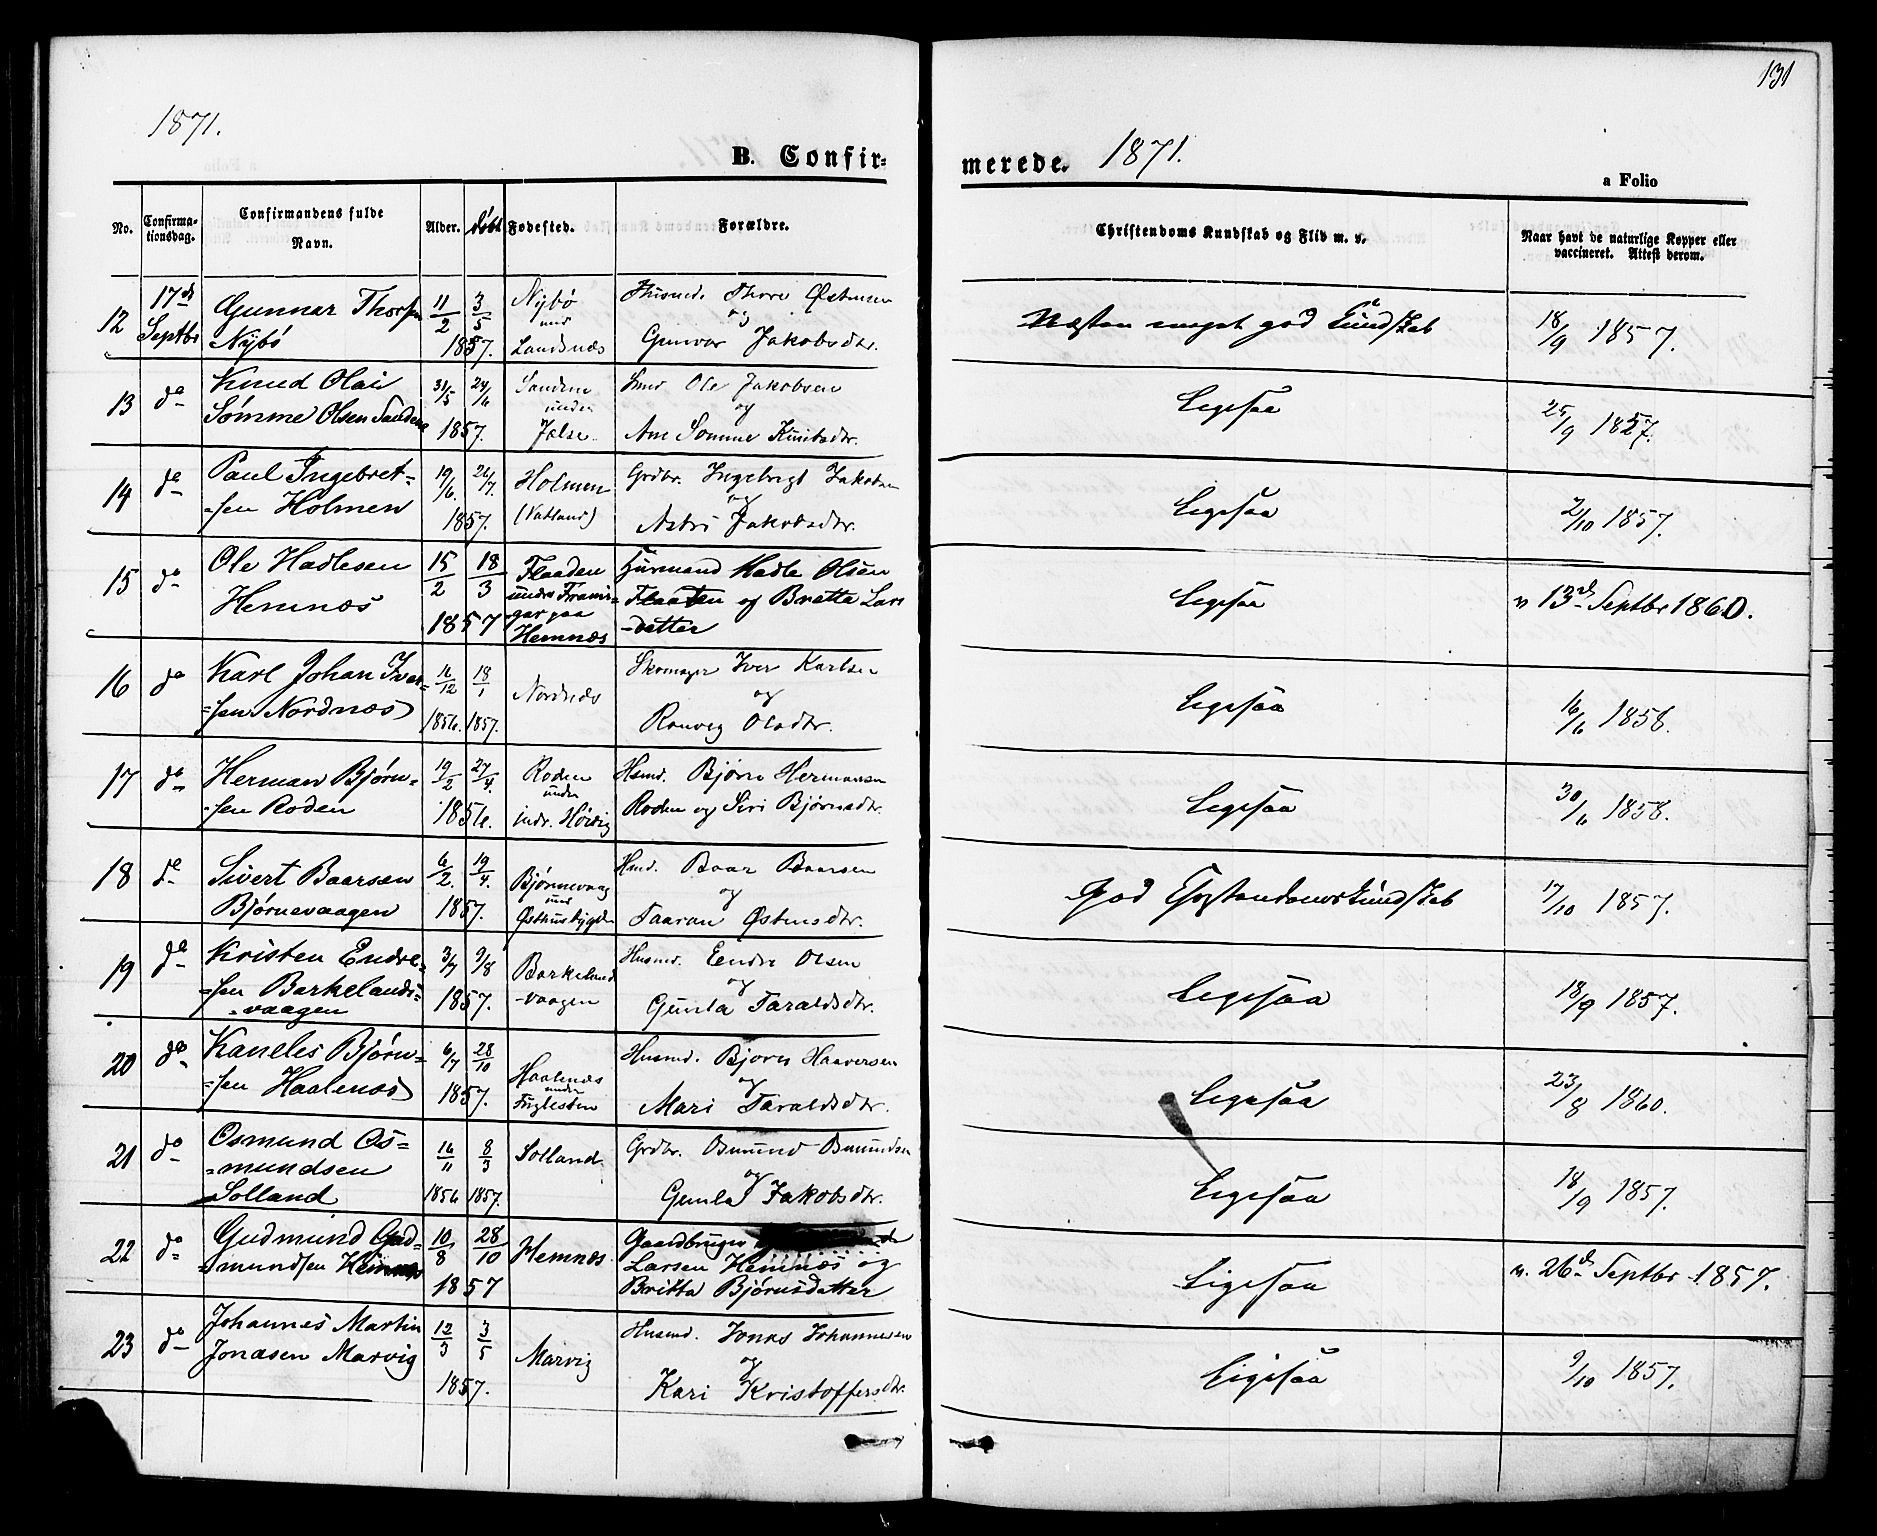 131
1871.
B. Confir-
merede. 1871.
a Folio
No. Confirma-tionsdag. Confirmandens fulde Navn. Alder. døbt Fødested. Forældre. Christendoms Kundskab og Flid m. v. Naar havt de naturlige Kopper eller vaccineret. Attest derom.
12 17de Septbr Gunnar Thors Nybø 11/2 3/5 1857. Nybø und Landsnæs Husmd. Thore Østensen og Gunvor Jakobsdtr. Næsten meget god Kundskab 18/9 1857.
13 do Knud Olai Sømme Olsen Sandene 31/5 24/6 1857. Sandene under Jelse. Smd Ole Jakobsen og Ane Somme Knudsdtr. Ligesaa 25/9 1857.
14 do Paul Ingebret-
-sen Holmen 19/6. 26/7. 1857. Holmen (Natland) Grdbr. Ingebrigt Jakobsen og Astri Jakobsdtr. Ligesaa 2/10 1857.
15 do Ole Hadlesen Hemnæs 15/2 18/3 1857 Flaaden under Framnes gaar paa Hemnæs Huusmand Hadle Olsen Flaaten og Britta Lars
-datter Ligesaa v 13de Septbr 1860.
16 do Karl Johan Iver-
-sen Nordnæs 16/12 1856. 18/1 1857. Nordnæs Skomager Iver Karlsen og Ranveg Olsdtr. Ligesaa 16/6 1858.
17 do Herman Bjørn-
-sen Roden 19/2 27/4. 1856. Roden under indr. Hövig Hsmd. Bjørn Hermansen Roden og Siri Bjørnsdtr. Ligesaa 30/6 1858.
18 do Sivert Baarsen Bjørnevaagen 6/2. 19/4. 1857. Bjørnevaag und Østhusbygden Hsmd. Baar Baarsen og Taaran Østensdtr. God Christendomskundskab 17/10 1857.
19 do Kristen Endre-
-sen Barkelands-
-vaagen 3/7 9/8 1857. Barkeland
-vaagen Husmd. Endre Olsen og Gunla Taraldsdtr. Ligesaa 18/9 1857.
20 do Kaneles Bjørn-
-sen Haalenæs 6/7 28/10 1857. Haalenæs under Fuglesten Husmd. Bjorn Haaversen og Mari Taraldsdtr. Ligesaa 23/8 1860.
21 do Osmund Os-
-mundsen Solland 16/11 1856 8/3 1857. Solland. Grdbr. Osmund Osmundsen og Gunla Jakobsdtr. Ligesaa 18/9 1857.
22 do Gudmund Gud-
mundsen Hemnæs 10/8 28/10 1857 Hemnæs Gaardbruger Larsen Hemnæs og Britta Bjørnsdatter Ligesaa v. 26de Septbr 1857.
23 do Johannes Martin Jonasen Marvig 12/3 3/5 1857. Marvig Husmd. Jonas Johannesen og Kari Kristoffersdtr. Ligesaa 9/10 1857.